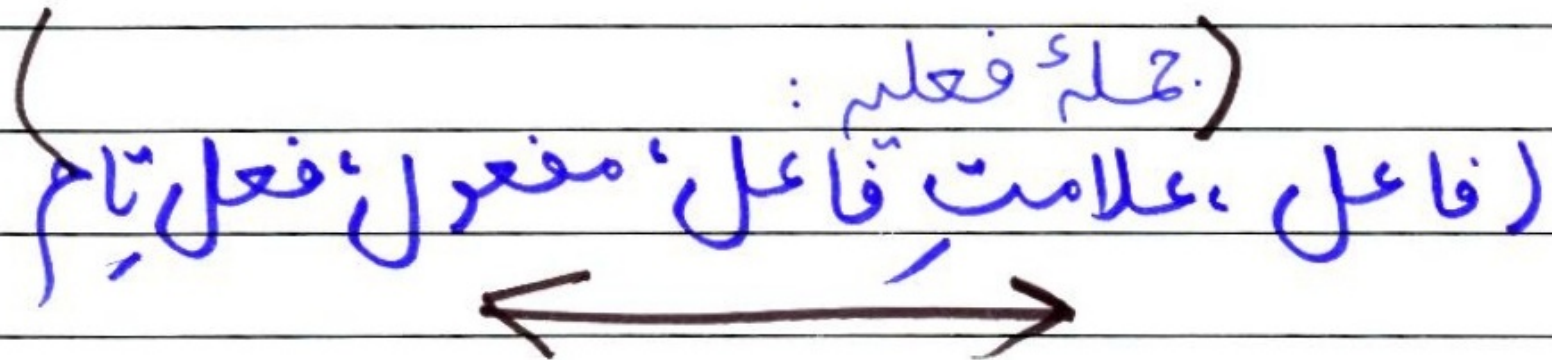 جملۂ فعلیہ :
(فاعل ، علامتِ فاعل، مفعول، فعلِ تام)